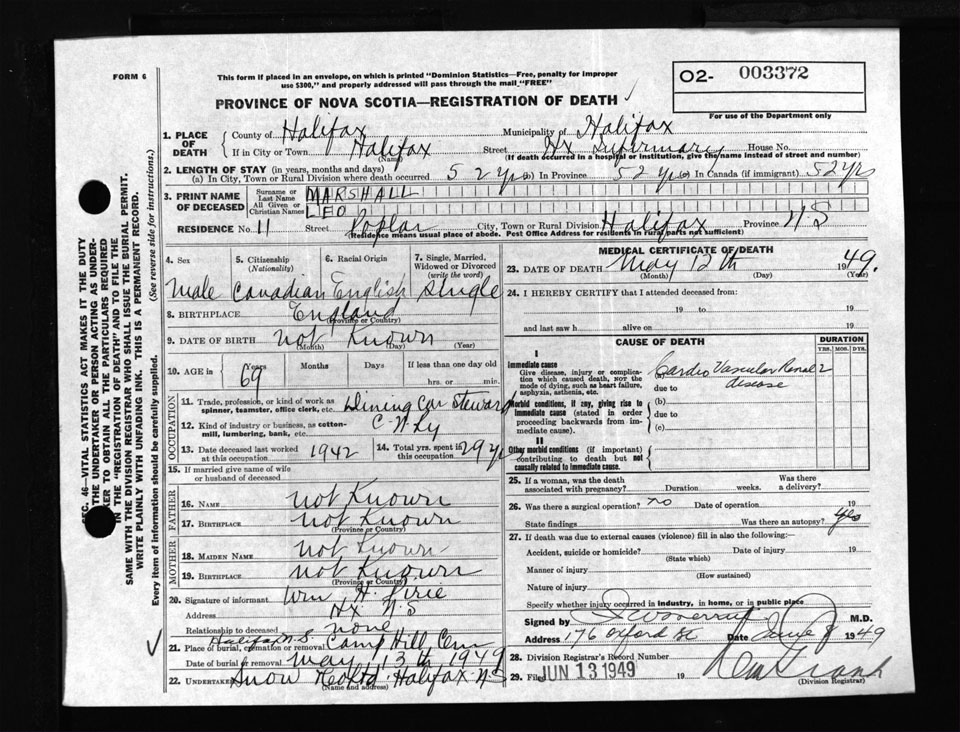 FORM 6
This form if placed in an envelope, on which is printed "Dominion Statistics—Free, penalty for improper
use $300," and properly addressed will pass through the mail "FREE"
O2- 003372
For use of the Department only
PROVINCE OF NOVA SCOTIA—REGISTRATION OF DEATH
1. PLACE OF DEATH
County of Halifax Municipality of Halifax
If in City or Town Halifax Street Hx Infirmary House No.
(Name) (If death occurred in a hospital or institution, give the name instead of street and number)
2. LENGTH OF STAY (in years, months and days)
(a) In City, Town or Rural Division where death occurred 52 yrs In Province 52 yrs In Canada (if immigrant) 52 yrs
3. PRINT NAME OF DECEASED
Surname or Last Name MARSHALL
All Given or Christian Names LEO
RESIDENCE No. 11 Street Poplar City, Town or Rural Division Halifax Province N S
(Residence means usual place of abode. Post Office Address for residents in rural parts not sufficient)
4. Sex
Male
5. Citizenship (Nationality)
Canadian
6. Racial Origin
English
7. Single, Married, Widowed or Divorced (write the word)
Single
8. BIRTHPLACE England
(Province or Country)
9. DATE OF BIRTH not Known
(Month) (Day) (Year)
10. AGE in Years Months Days If less than one day old
69 hrs. or min.
OCCUPATION
11. Trade, profession, or kind of work as spinner, teamster, office clerk, etc. Dining Car Steward
12. Kind of industry or business, as cotton-mill, lumbering, bank, etc. C. N. Ry
13. Date deceased last worked at this occupation 1942
14. Total yrs. spent in this occupation 29 yrs
15. If married give name of wife or husband of deceased
FATHER
16. NAME not Known
17. BIRTHPLACE not Known
(Province or Country)
MOTHER
18. MAIDEN NAME not Known
19. BIRTHPLACE not Known
(Province or Country)
20. Signature of informant Wm H. Pirie
Address Hx N. S
Relationship to deceased none
21. Place of burial, cremation or removal Halifax N.S. Camp Hill Cem
Date of burial or removal May 13th 1949
22. Undertaker Snow Halifax N S
(Name and address)
MEDICAL CERTIFICATE OF DEATH
23. DATE OF DEATH May 12th 1949.
(Month) (Day) (Year)
24. I HEREBY CERTIFY that I attended deceased from:
19 to 19
and last saw h alive on 19
CAUSE OF DEATH
DURATION
YRS. MOS. DYS.
I
Immediate cause
Give disease, injury or complication which caused death, NOT the mode of dying, such as heart failure, asphyxia, asthenia, etc.
(a) Cardio Vascular Renal disease
due to
Morbid conditions, if any, giving rise to immediate cause (stated in order proceeding backwards from immediate cause).
(b)
due to
(c)
II
Other morbid conditions (if important) contributing to death but not causally related to immediate cause.
25. If a woman, was the death associated with pregnancy? Duration weeks. Was there a delivery?
26. Was there a surgical operation? no Date of operation 19
State findings Was there an autopsy? yes
27. If death was due to external causes (violence) fill in also the following:—
Accident, suicide or homicide? Date of injury 19
(State which)
Manner of injury
(How sustained)
Nature of injury
Specify whether injury occurred in industry, in home, or in public place
Signed by M.D.
Address 176 Oxford St Date June 1949
28. Division Registrar's Record Number
29. Filed JUN 13 1949 19
(Division Registrar)
THE UNDERTAKER OR PERSON ACTING AS UNDER-
TO OBTAIN ALL THE PARTICULARS REQUIRED
IN THE "REGISTRATION OF DEATH" AND TO FILE THE
SAME WITH THE DIVISION REGISTRAR WHO SHALL ISSUE THE BURIAL PERMIT.
WRITE PLAINLY WITH UNFADING INK. THIS IS A PERMANENT RECORD.
Every item of information should be carefully supplied. (See reverse side for instructions.)
46—VITAL STATISTICS ACT MAKES IT THE DUTY